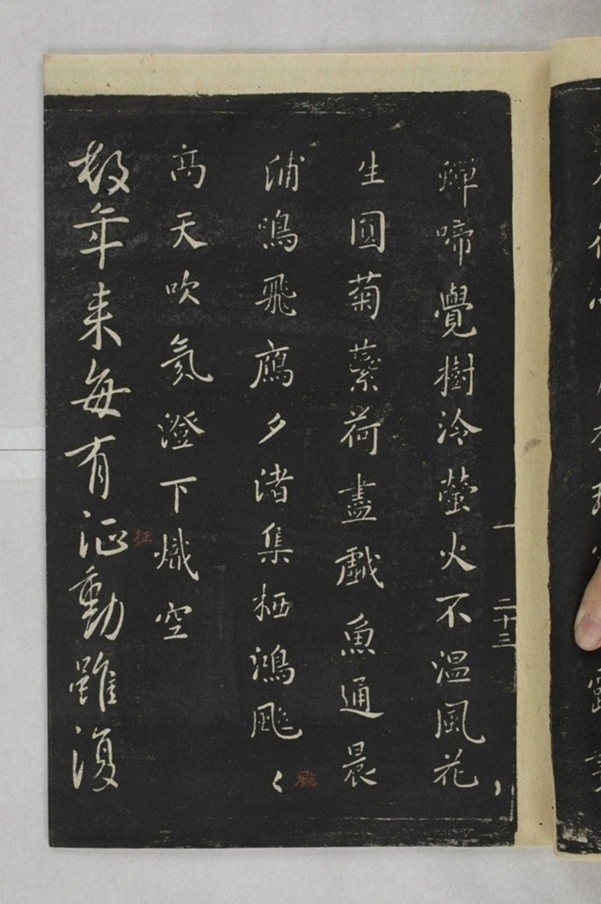 蟬啼覺樹冷螢火不溫風花
生圓菊蘂荷盡戲魚通晨
浦鳴飛鴈夕渚集栖鴻颷〻
颷
高天吹氛澄下熾空
征
數年來每有征動雖復
二十三